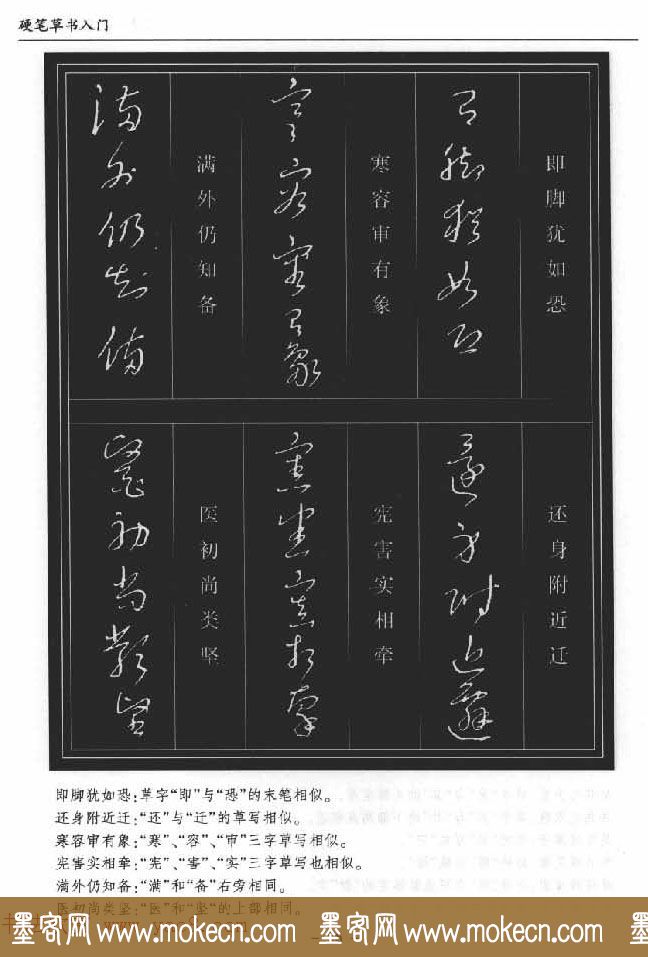 硬笔草书入门
即脚犹如恐
寒容审有象
满外仍知备
还身附近迁
宪害实相牵
医初尚类坚
即脚犹如恐:草字“即”与“恐”的末笔相似。
还身附近迁:“还”与“迁”的草写相似。
寒容审有象:“寒”、“容”、“审”三字草写相似。
宪害实相牵:“宪”、“害”、“实”三字草写也相似。
满外仍知备:“满”和“备”右旁相同。
医初尚类坚:“医”和“坚”的上部相同。
墨客网 www.mokecn.com 墨客网 www.mokecn.com